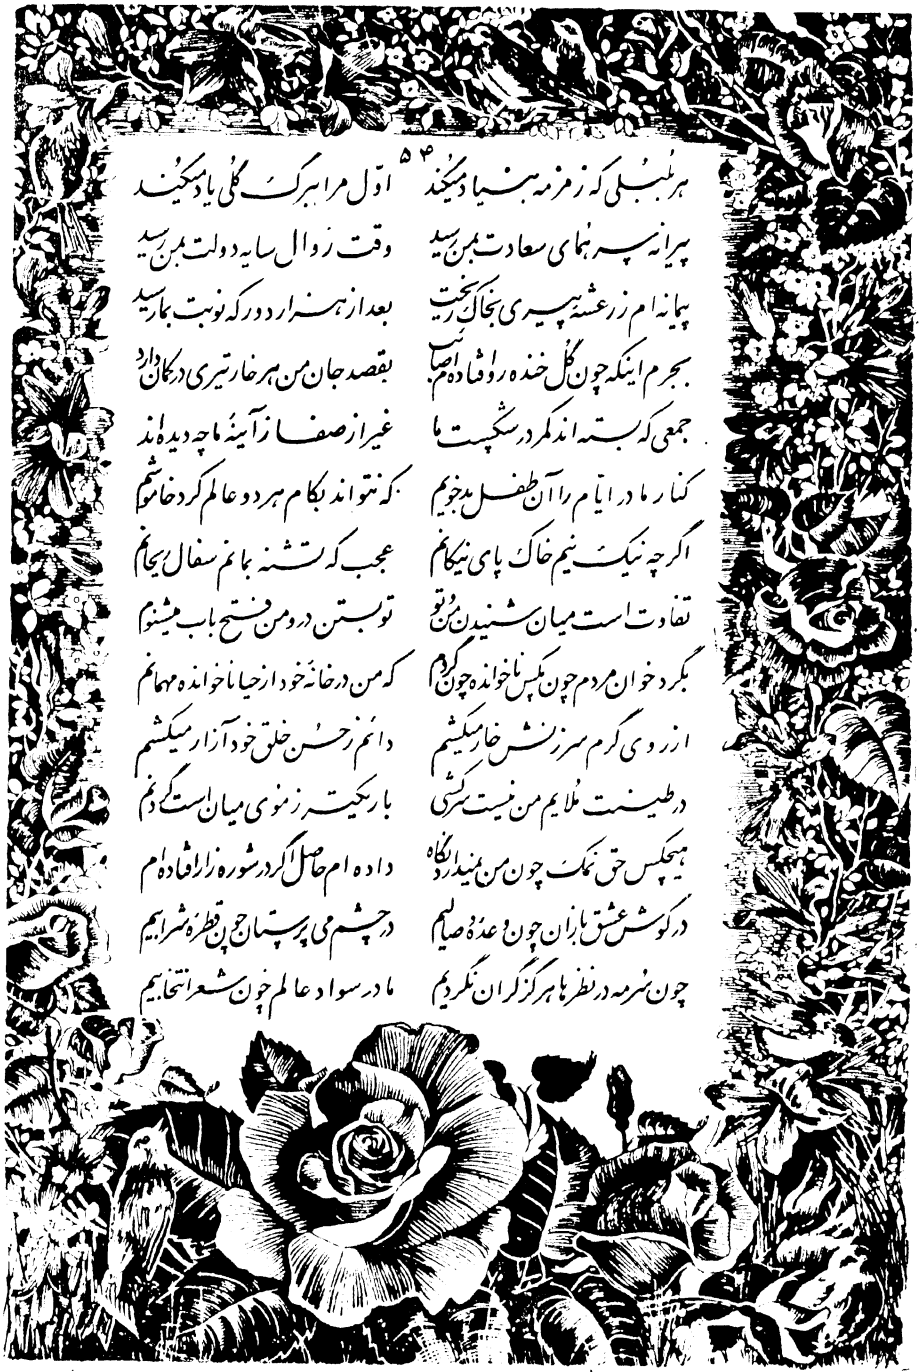 ۵۴
هر بلبلی که زمزمه بنیاد میکند اوّل مرا ببرگ گلی یاد میکند
پیرانه سر همای سعادت بمن رسید وقت زوال سایه دولت بمن رسید
پیمانه ام ز رعشهٔ پیری بخاک ریخت بعد از هزار دور که نوبت بما رسید
بجرم اینکه چون گل خنده رو افتاده‌ام صائب بقصد جان من هر خار تیری در کمان دارد
جمعی که بسته اند کمر در شکست ما غیر از صفا ز آینهٔ ما چه دیده‌اند
کنار مادر ایام را آن طفل بدخویم که نتواند بکام هر دو عالم کرد خاموشم
اگر چه نیک نیم خاک پای نیکانم عجب که تشنه بمانم سفال ریحانم
تفاوت است میان شنیدن من و تو تو بستن در و من فتح باب میشنوم
بگرد خوان مردم چون مگس ناخوانده چون گردم که من در خانهٔ خود از حیا ناخوانده مهمانم
از روی گرم سرزنش خار میکشم دائم ز حسن خلق خود آزار میکشم
در طینت ملایم من نیست سرکشی باریکتر ز موی میان است گردنم
هیچکس حق نمک چون من نمیدارد نگاه داده ام حاصل اگر در شوره زار افتاده ام
در گوش عشق بازان چون وعدهٔ وصالیم در چشم می پرستان چون قطرهٔ شرابیم
چون سرمه در نظرها هرگز گران نگردیم ما در سواد عالم چون شعر انتخابیم